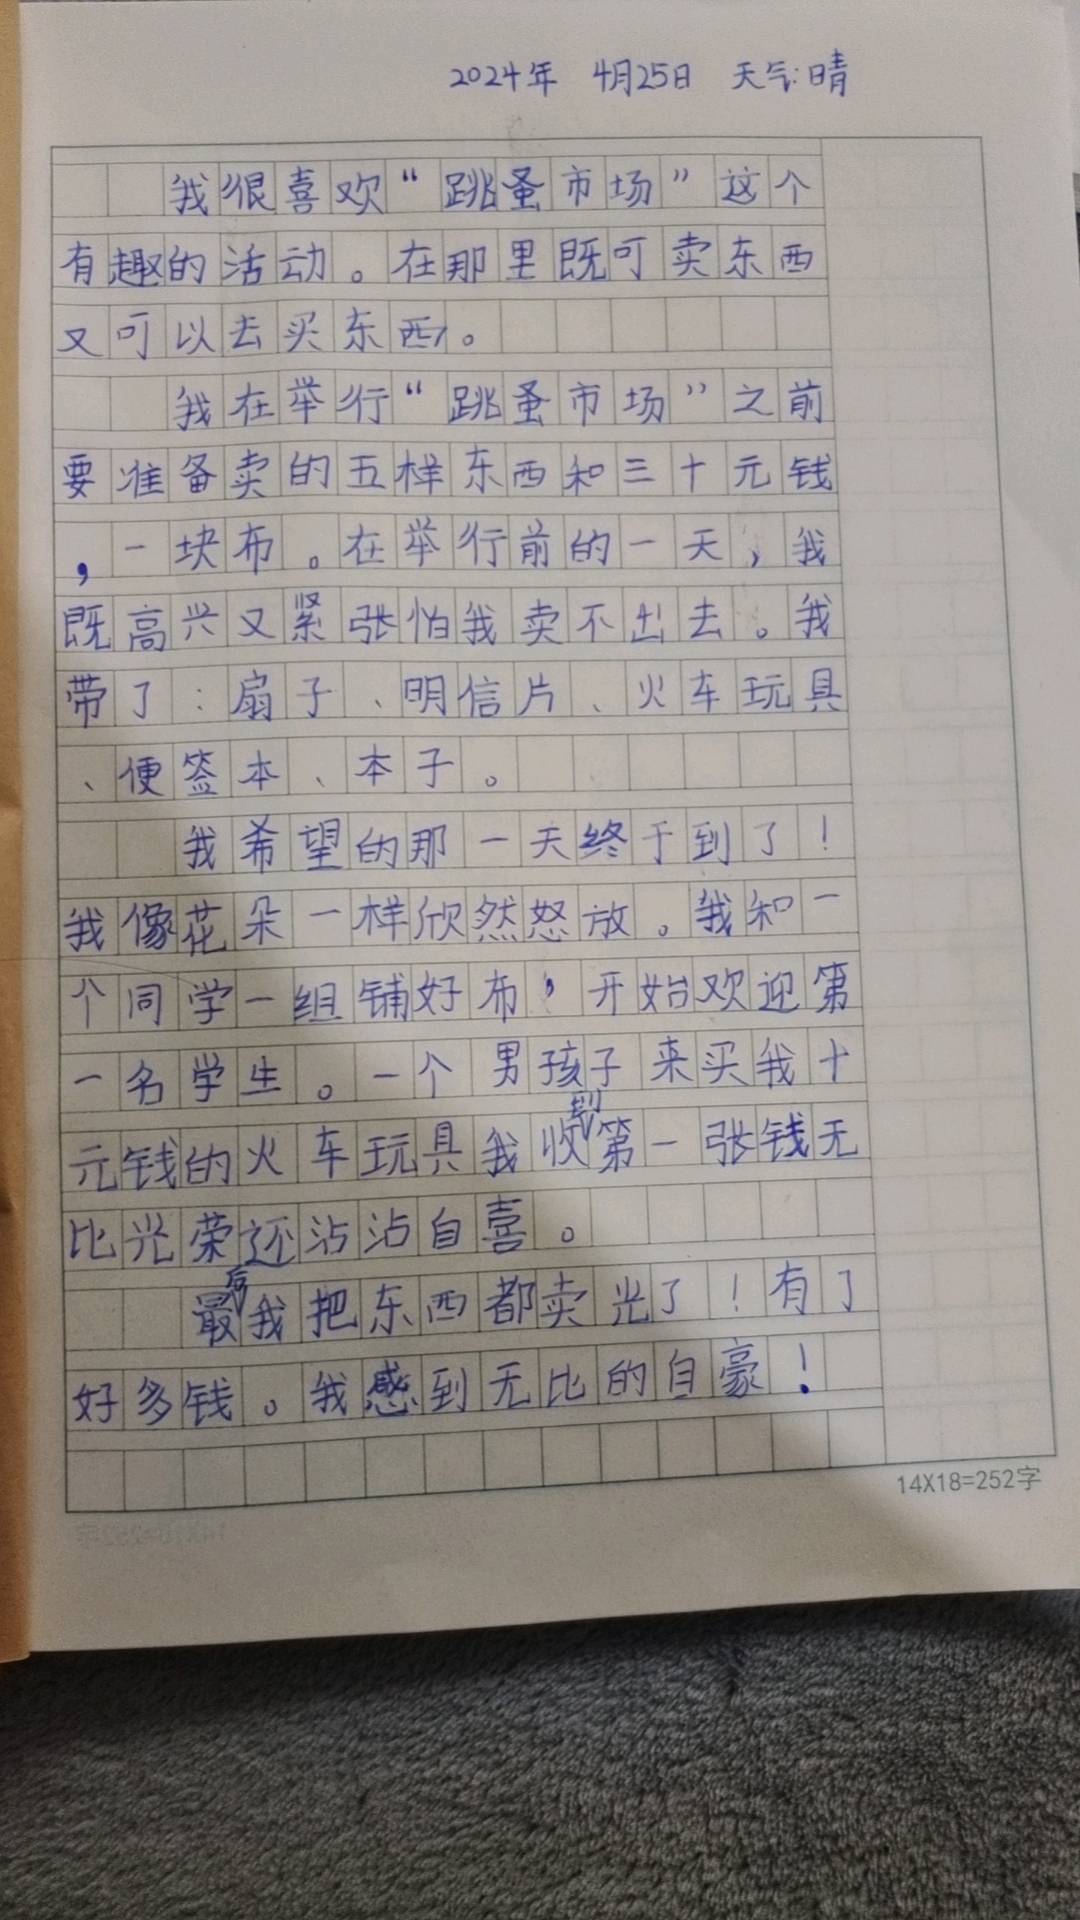 2024年 4月25日 天气:晴
我很喜欢“跳蚤市场”这个
有趣的活动。在那里既可卖东西
又可以去买东西。
我在举行“跳蚤市场”之前
要准备卖的五样东西和三十元钱
,一块布。在举行前的一天,我
既高兴又紧张怕我卖不出去。我
带了:扇子、明信片、火车玩具
、便签本、本子。
我希望的那一天终于到了!
我像花朵一样欣然怒放。我和一
个同学一组铺好布,开始欢迎第
一名学生。一个男孩子来买我十
元钱的火车玩具我收到第一张钱无
比光荣还沾沾自喜。
最后我把东西都卖光了!有了
好多钱。我感到无比的自豪!
14X18=252字